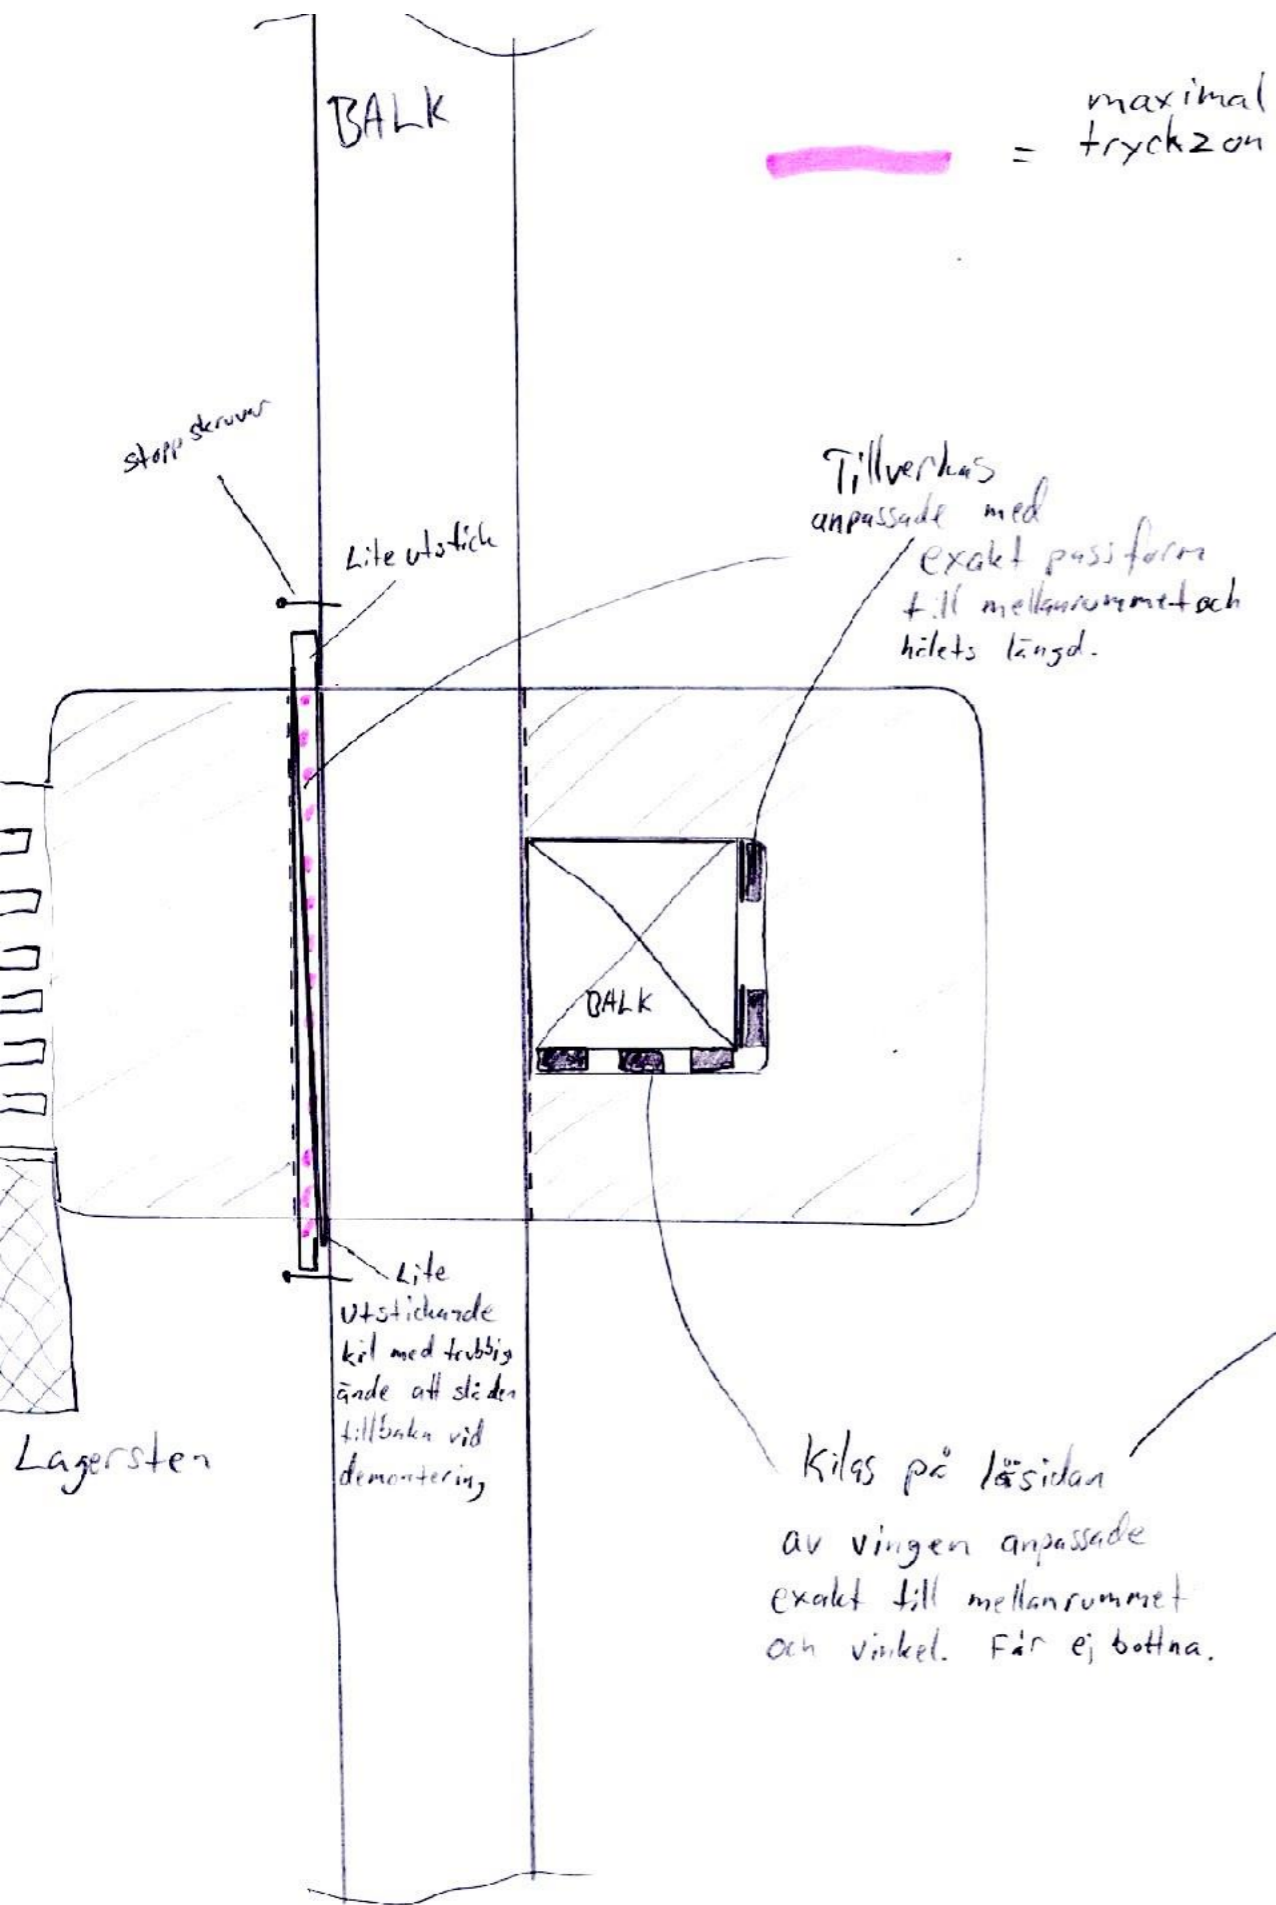 BALK
maximal
= tryckzon
stoppskruvar
Lite utstick
Tillverkas
anpassade med
exakt passform
till mellanrummet och
hålets längd.
BALK
Lite
utstickande
kil med trubbig
ände att slå den
tillbaka vid
demontering
Lagersten
Kilas på läsidan
av vingen anpassade
exakt till mellanrummet
och vinkel. Får ej bottna.